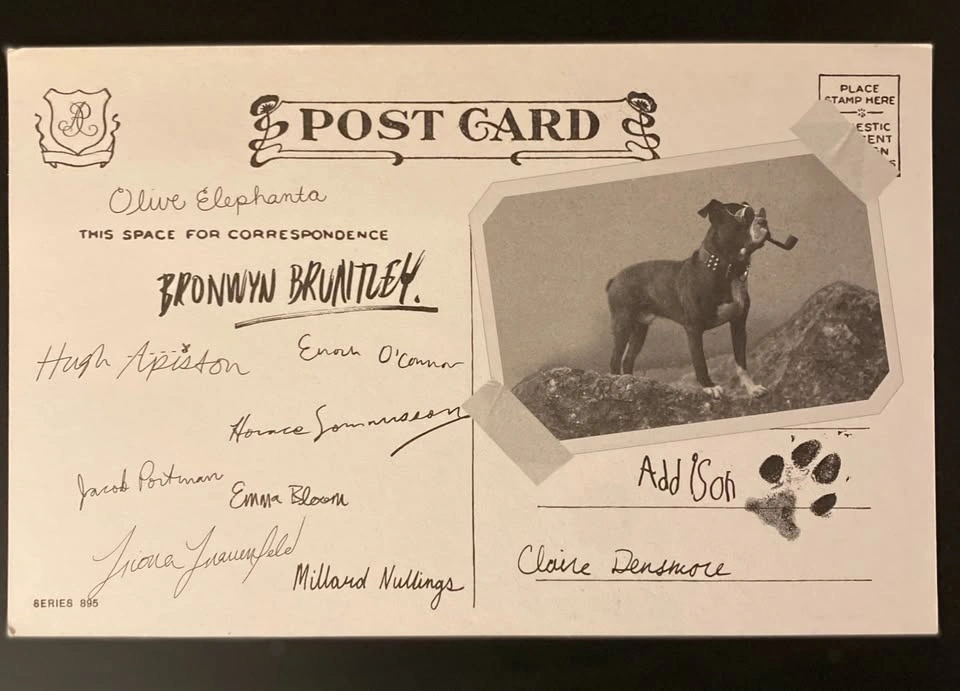 POST CARD
PLACE
STAMP HERE
ESTIC
ENT
N
S
Olive Elephanta
THIS SPACE FOR CORRESPONDENCE
BRONWYN BRUNTLEY.
Hugh Apiston
Enoch O'Connor
Horace Somnusson
Jacob Portman
Emma Bloom
Fiona Frauenfeld
Millard Nullings
Addison
Claire Densmore
SERIES 895